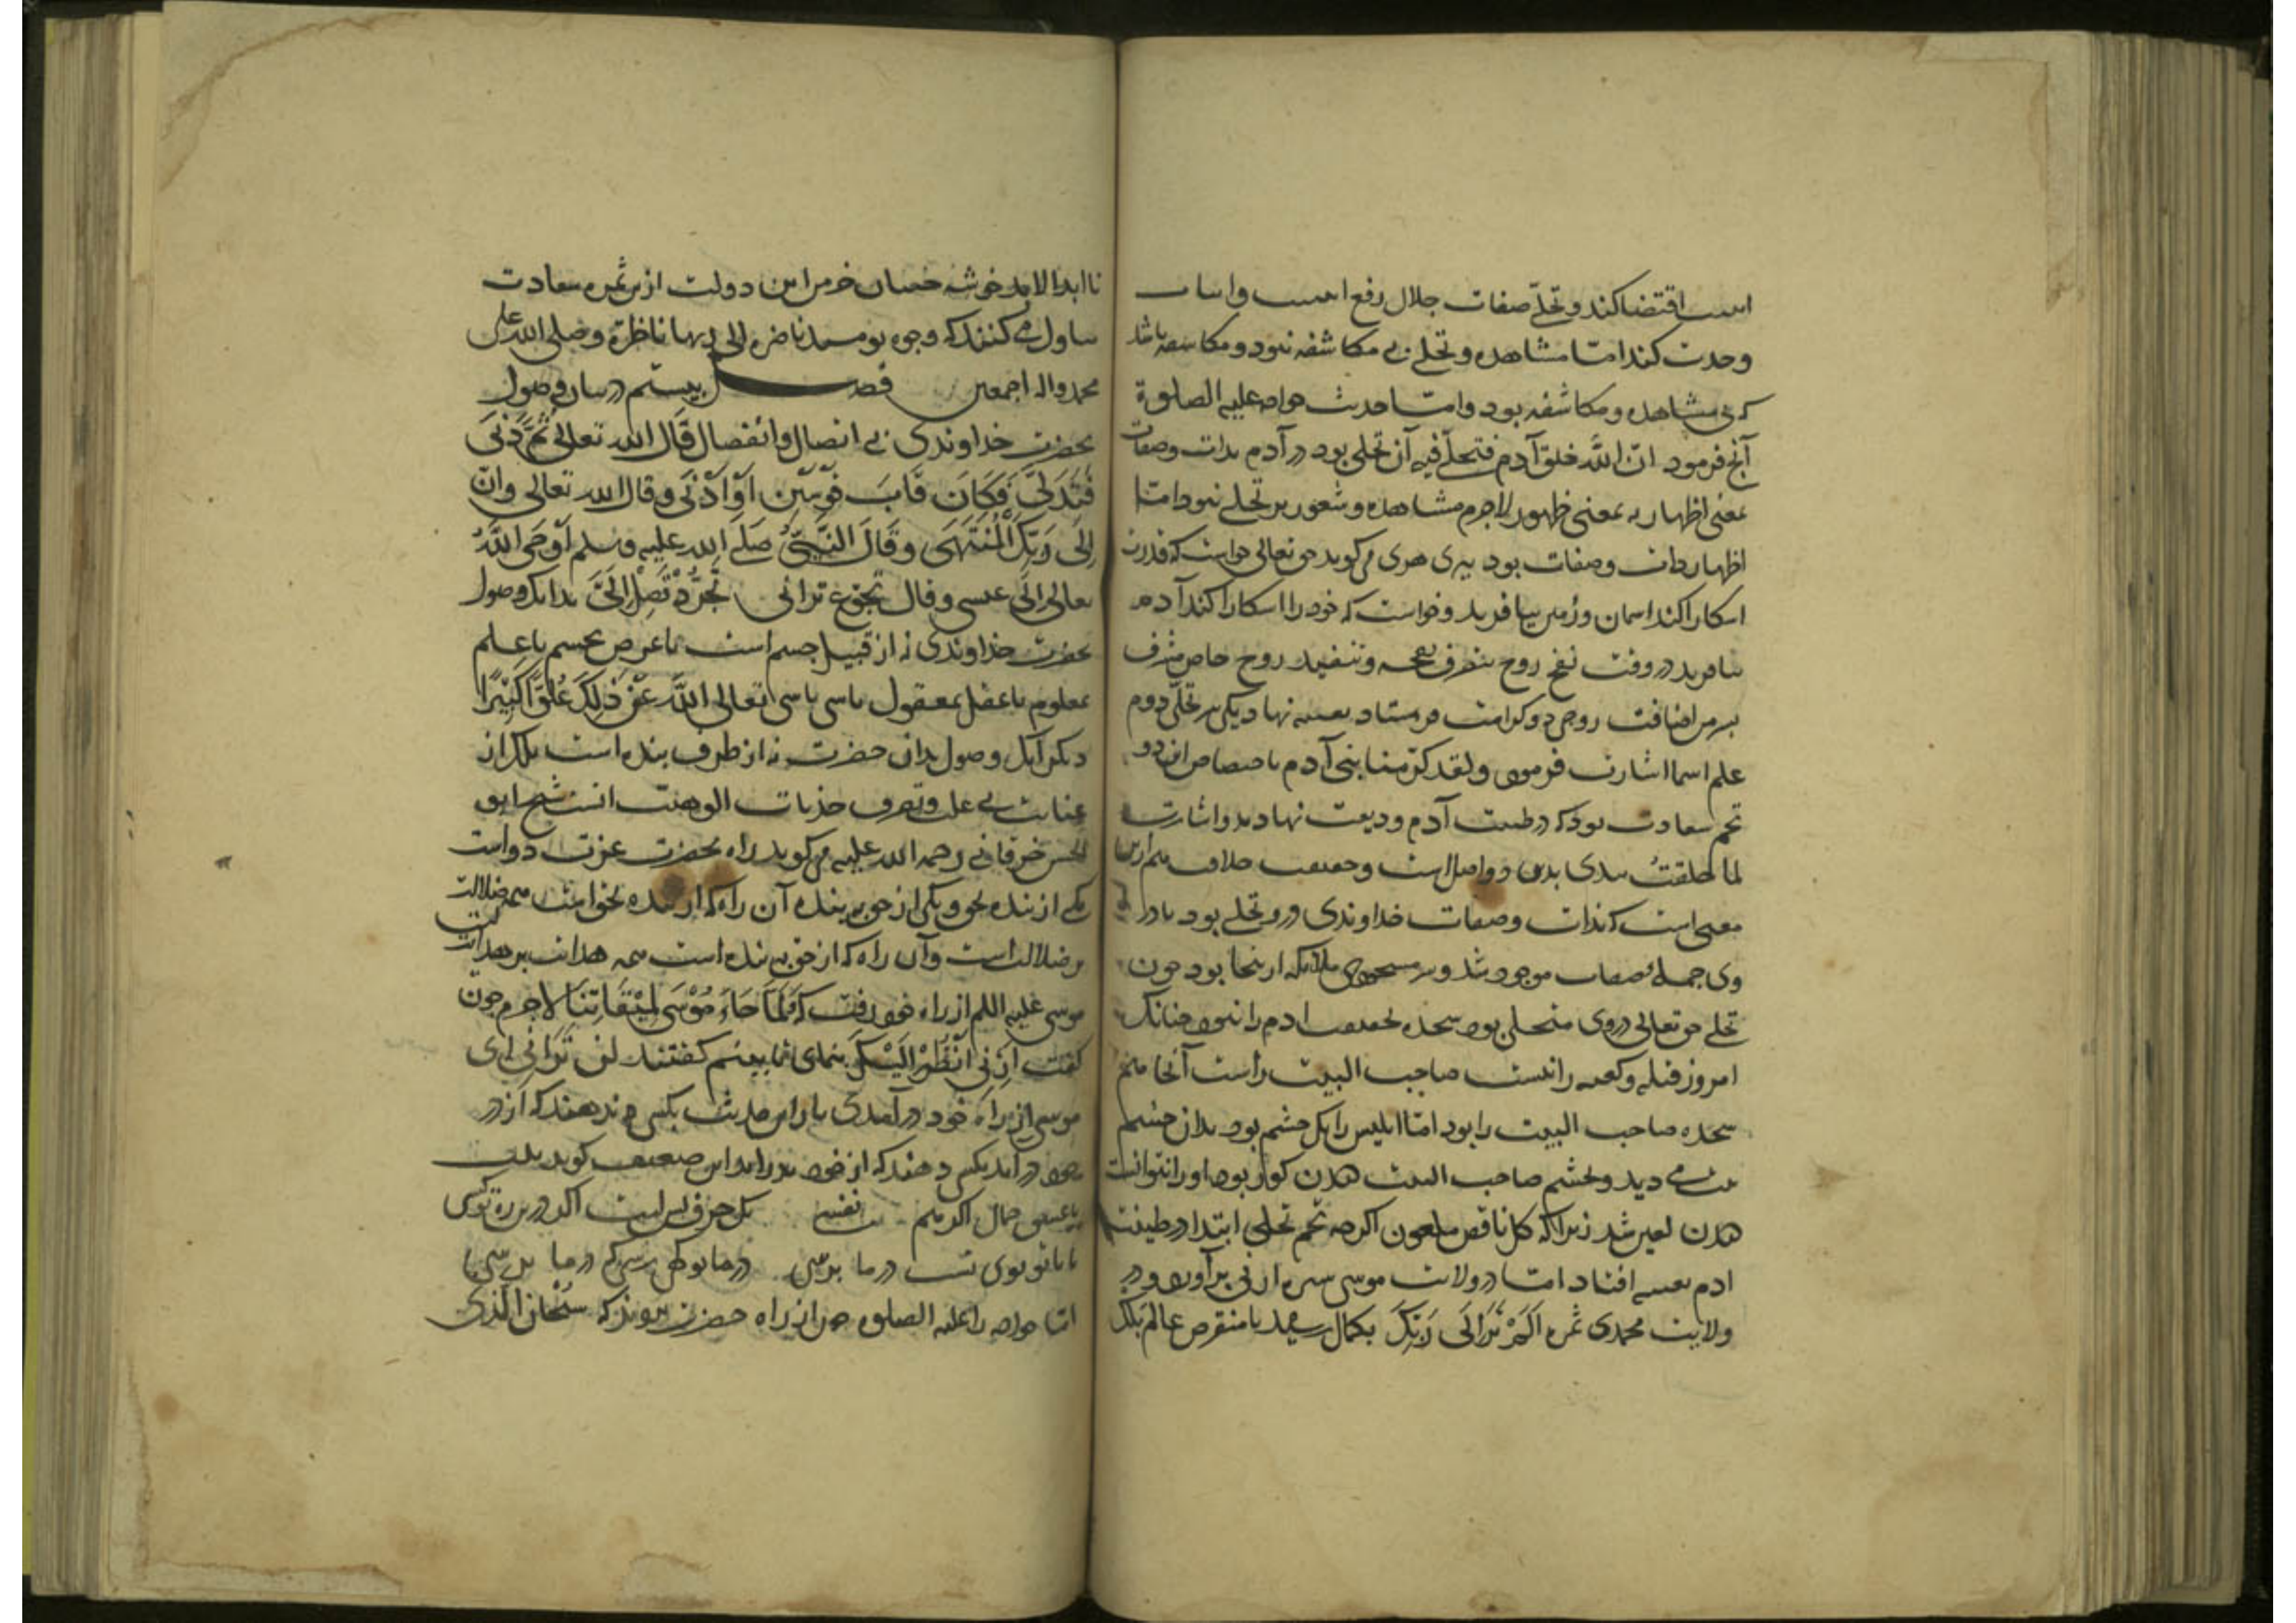 است اقتضا کند و تجلی صفات جلال رفع اثنینیت و اثبات
وحدت کند اما مشاهده و تجلی بی مکاشفه نبود و مکاشفه باشد
که بی مشاهده و مکاشفه بود و اما حدیث خواجه علیه الصلوة
آنچ فرمود ان الله خلق آدم فتجلی فیه آن تجلی بود در آدم بذات وصفات
بمعنی اظهار نه بمعنی ظهور لاجرم مشاهده و شعور بر تجلی نبود اما
اظهار ذات وصفات بود پیری هری می کوید حق تعالی خواست که قدرت
اسکارا کند اسمان و زمین بیافرید و خواست که خود را اسکارا کند آدم
بیافرید در وقت نفخ روح بتصرف نفخه و تنفیذ روح خاص بشرف
اضافت روحی دو کرامت در مستاد تعبیه نهاد یکی سر تجلی دوم
علم اسما اشارت فرمود ولقد کرمنا بنی آدم باختصاص این دو
تخم سعادت بود که در طینت آدم ودیعت نهاد بدو اشارت
لما خلقت بیدی بدین دو اصل است و حقیقت خلافت هم ازین
معنی است که ذات وصفات خداوندی درو تجلی بود
وی جمله صفات موجود شد و سر مسجودی ملایکه ازینجا بود چون
تجلی حق تعالی در وی متجلی بود سجده بحقیقت ادم را نبود چنانک
امروز قبله و کعبه را نیست صاحب البیت راست آنجا هم
سجده صاحب البیت را بود اما ابلیس را یک چشم بود بدان چشم
بیت می دید و بچشم صاحب البیت دیدن کور بود او را نتوانست
دیدن لعین شد زیرا که کل ناقص ملعون اکرچه تخم تجلی ابتدا در طینت
ادم تعبیه افتاد اما در ولایت موسی سبزه ارنی برآورد و در
ولایت محمدی ثمره اَلَم تَرَ اِلَی رَبِّکَ بکمال رسید تا منقرض عالم بلک
تا ابد الاباد خوشه چینان خرمن این دولت ازین ثمره سعادت
تناول می کنند که وجوه یومیذ ناضره الی ربها ناظرة وصلی الله علی
محمد واله اجمعین فصل بیستم در بیان وصول
بحضرت خداوندی بی اتصال و انفصال قال الله تعالی ثُمَّ دَنَی
فَتَدَلَّی فَکَانَ قَابَ قَوْسَیْنِ اَوْ اَدْنَی وقال الله تعالی وانّ
اِلَی رَبِّکَ الْمُنْتَهَی وَقَالَ النَّبِیُّ صَلَّی الله علیه وسلم اَوْحَی اللهُ
تعالی الی عیسی وقال تجوع ترانی تَجَرَّدْ تَصِلْ اِلَیَّ بدانک وصول
بحضرت خداوندی نه از قبیل جسم است با عرض بجسم یا علم
بمعلوم یا عقل بمعقول یا شی با شی تعالی الله عَنْ ذٰلِکَ عُلُوًّا کَبِیْرًا
دیکر آنک وصول بدان حضرت نه از طرف بنده است بلک از
عنایت بی علت و تصرف جذبات الوهیت است شیخ ابو
الحسن خرقانی رحمه الله علیه می کوید راه بحضرت عزت دو است
یکی از بنده بحق و یکی از حق ببنده آن راه که از بنده بحق است همه ضلالت
بر ضلالت است و آن راه که از حق ببنده است همه هدایت بر هدایت
موسی علیه السلم از راه خود رفت که فَلَمَّا جَاءَ مُوْسَی لِمِیْقَاتِنَا لاجرم چون
کفت اَرِنِی اَنْظُرْ اِلَیْکَ بنمای تا ببینم کفتند لن تَرَانِی ای
موسی از راه خود درآمدی بار این حدیث بکسی ندهند که از در
خود درآید بکسی دهند که از خود بدر آید این ضعیف کوید بیت
با عشق جمال ما اکر هم نفسی یک حرف بس است اکر درین ره تو کسی
تا با تو توی تست در ما نرسی در ما تو کهی رسی که در ما برسی
اما خواجه را علیه الصلوه چون از راه حضرت بردند که سُبْحَانَ الَّذِی